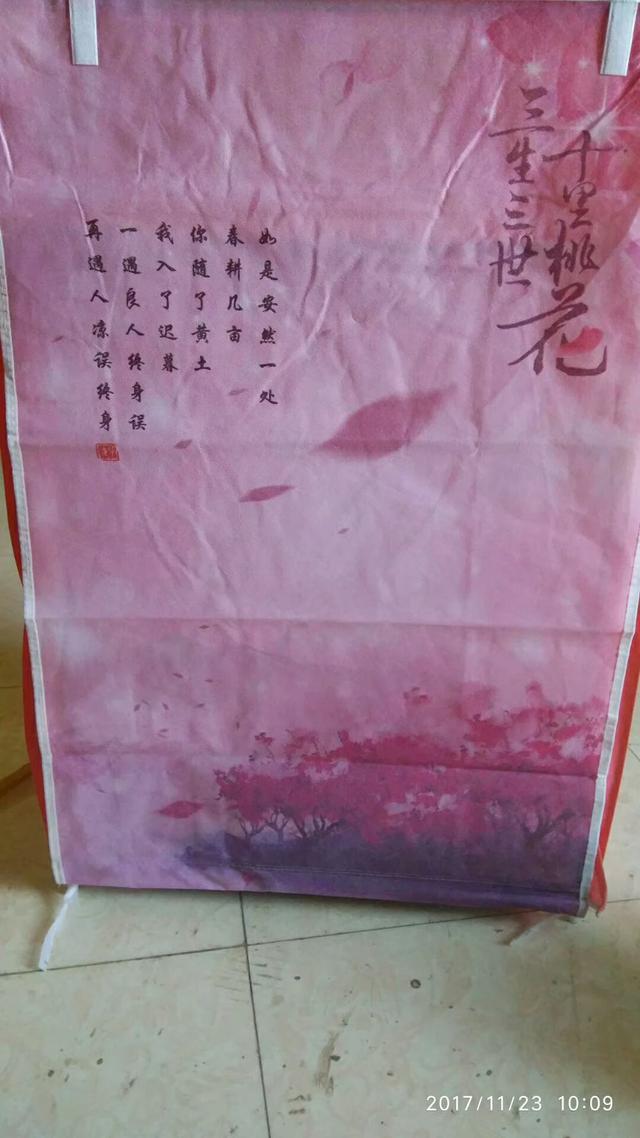 三生三世
十里桃花
如是安然一处
春耕几亩
你随了黄土
我入了迟暮
一遇良人终身误
再遇人凉误终身
2017/11/23 10:09